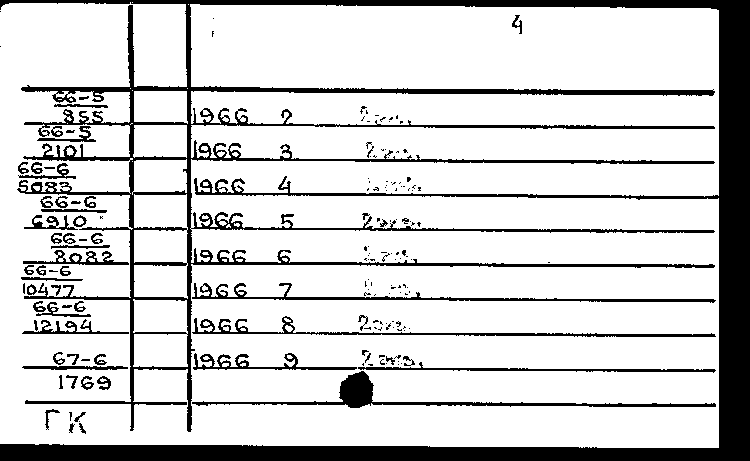 4
66-5
855 1966 2 2 экз.
66-5
2101 1966 3 2 экз.
66-6
5083 1966 4
66-6
6910 1966 5 2 экз.
66-6
8082 1966 6 2 экз.
66-6
10477 1966 7 2 экз.
66-6
12194 1966 8 2 экз.
67-6 1966 9 2 экз.
1769
ГК